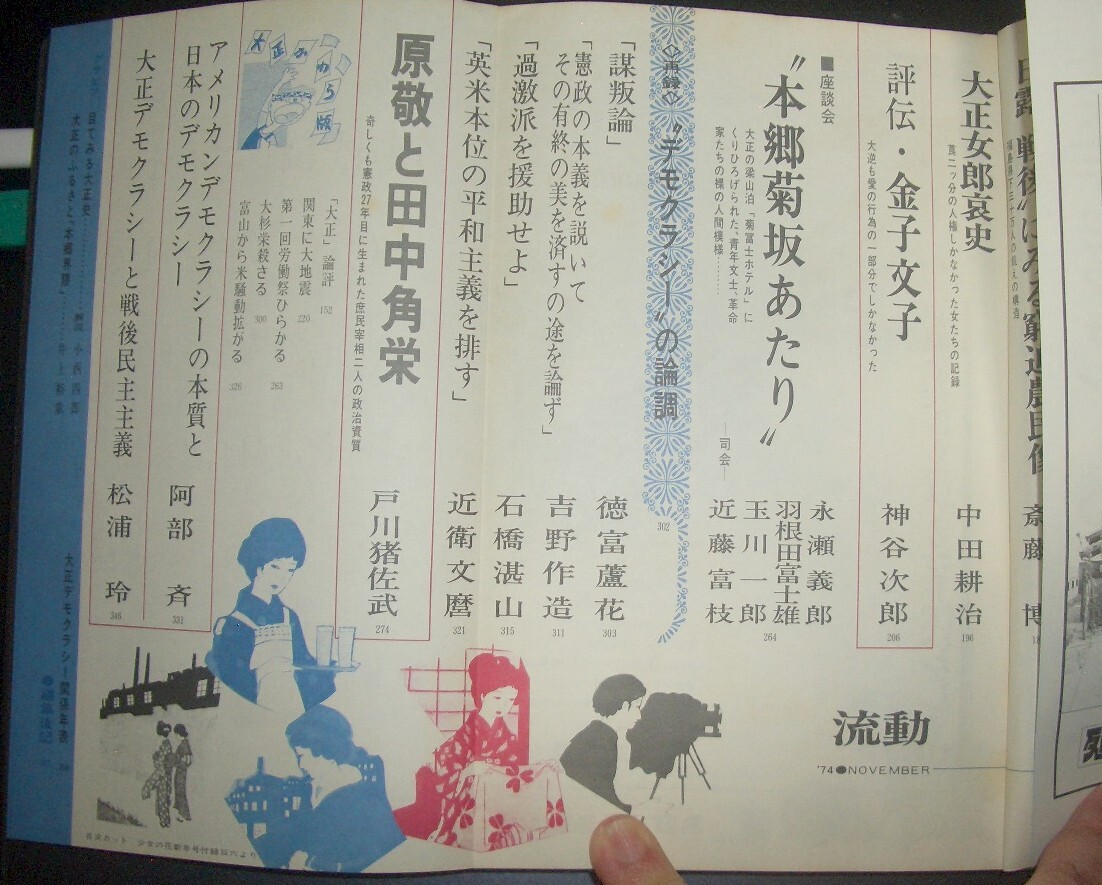 日露〝戦後〟にみる窮迫農民像
斎藤 博
大正女郎哀史
萬二ッ分の人権しかなかった女たちの記録
中田耕治
196
評伝・金子文子
大逆も愛の行為の一部分でしかなかった
神谷次郎
206
■座談会
〝本郷菊坂あたり〟
大正の梁山泊「菊富士ホテル」に
くりひろげられた、青年文士、革命
家たちの裸の人間模様……
永瀬義郎
羽根田富士雄
玉川一郎
―司会―
近藤富枝
264
〈再録〉〝デモクラシー〟の論調
302
「謀叛論」
徳富蘆花
303
「憲政の本義を説いて
その有終の美を済すの途を論ず」
吉野作造
311
「過激派を援助せよ」
石橋湛山
315
「英米本位の平和主義を排す」
近衛文麿
321
原敬と田中角栄
奇しくも憲政27年目に生まれた庶民宰相二人の政治資質
戸川猪佐武
274
大正かわら版
「大正」論評
152
関東に大地震
220
第一回労働祭ひらかる
263
大杉栄殺さる
300
富山から米騒動拡がる
326
アメリカンデモクラシーの本質と
日本のデモクラシー
阿部 斉
331
大正デモクラシーと戦後民主主義
松浦 玲
346
目でみる大正史
小西四郎
大正のふるさと「本郷界隈」
井上
大正デモクラシー関係年表
●編集後記
流動
'74●NOVEMBER